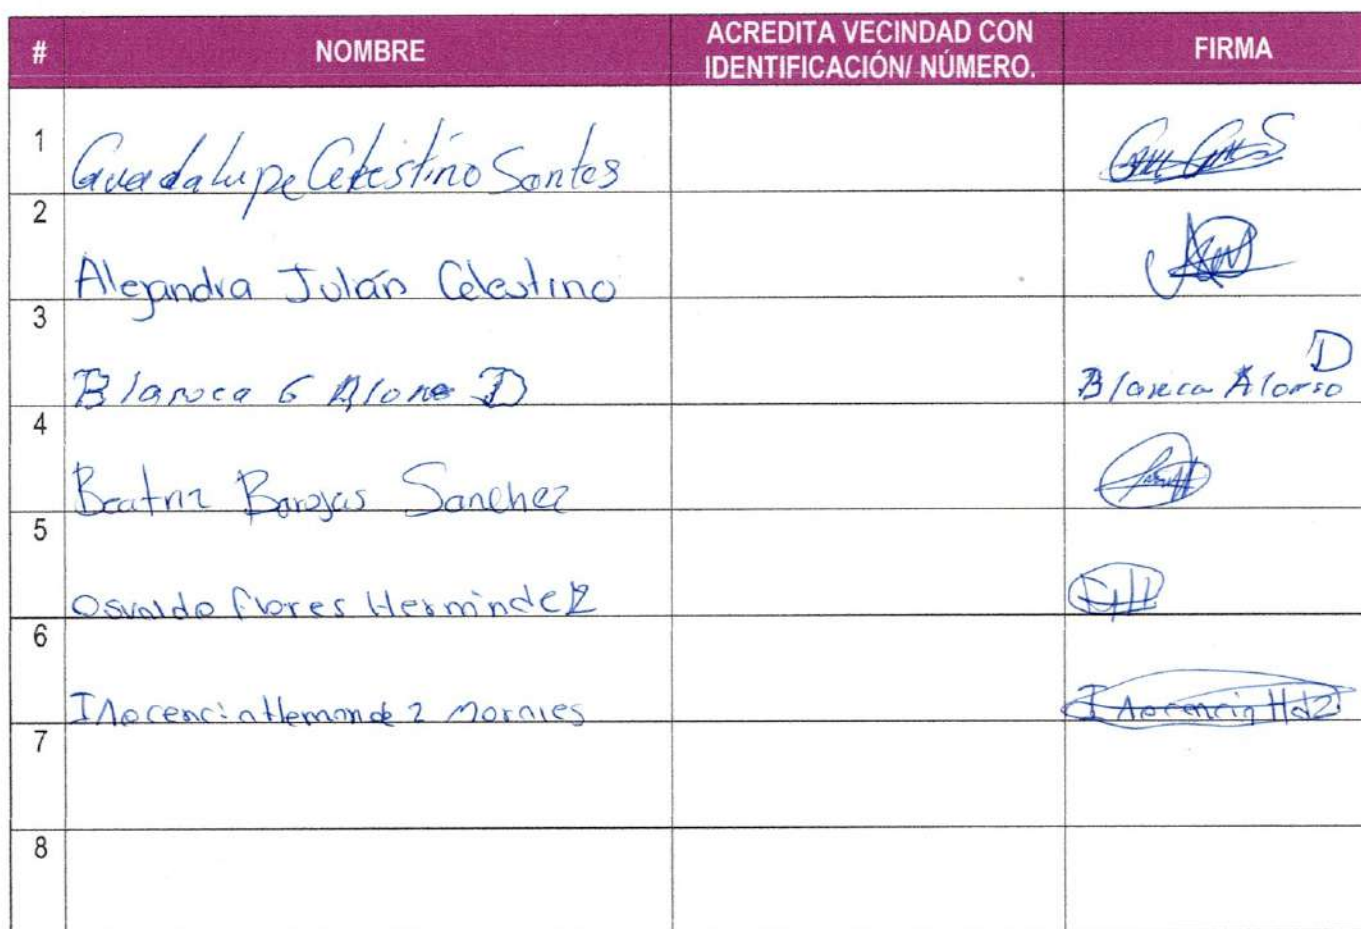 # NOMBRE ACREDITA VECINDAD CON IDENTIFICACIÓN/ NÚMERO. FIRMA
1 Guadalupe Celestino Santos
2 Alejandra Julián Celestino
3 Blanca G Alonso D Blanca Alonso D
4 Beatriz Barojas Sanchez
5 Osvaldo flores Hernindez FH
6 Inocencia Hernandez Morales Inocencia Hdz
7
8